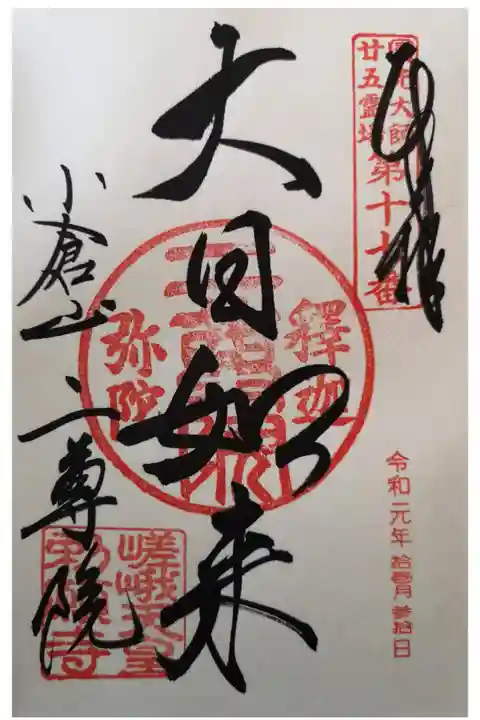 奉拝
圓光大師
廿五霊場
第十七番
令和元年 拾壱月 参拾日
大日如来
釋迦
弥陀
小倉山 二尊院
嵯峨天皇
勅願寺